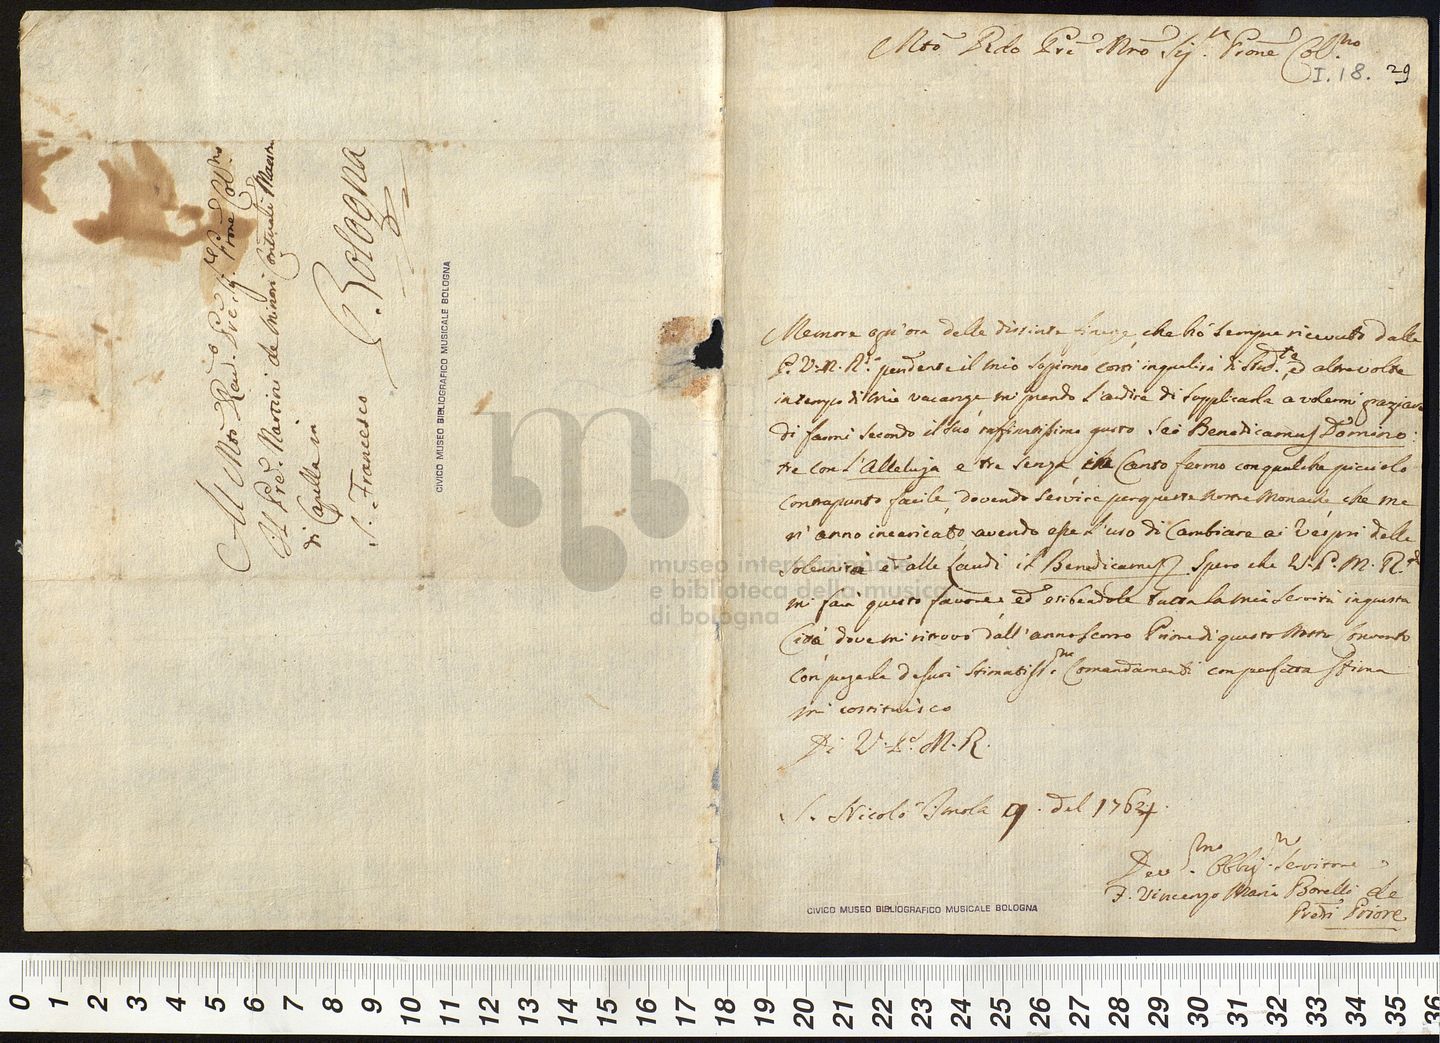 Al Mto Rand. Pre Sig. Prone Col.mo
Il Pre. Martini de Minori Conventuali Maestro
di Capella in
S. Francesco
Bologna
CIVICO MUSEO BIBLIOGRAFICO MUSICALE BOLOGNA
Mto Rdo Pre Mro Sig.r Prone Col.mo
I.18. 29
Memore ogn'ora delle distinte finezze, che hò sempre ricevuto dalla
P. V. M. R. pendente il mio sogiorno costì in qualità di Stud.te, ed altre volte
in tempo di mie vacanze mi prendo l'ardire di supplicarla a volermi graziare
di farmi secondo il suo raffinatissimo gusto sei Benedicamus Domino:
tre con l'Alleluja e tre senza, in Canto fermo con qualche picciolo
contrapunto facile, dovendo servire per queste nostre Monache che me
n'anno incaricato, avendo esse l'uso di Cambiare ai Vespri delle
solennità ed alle Laudi il Benedicamus. Spero che V. P. M. R.
mi farà questo favore: ed esibendole tutta la mia servitù in questa
Città dove mi ritrovo dall'anno scorso Priore di questo Nostro Convento
con pregarla de suoi stimatiss.mi Comandamenti con perfetta stima
mi costituisco
Di V. P. M. R.
S. Nicolò Imola 9. del 1764.
Dev.mo Obblig.mo Servitore
F. Vincenzo Maria Borelli de
Pred.ri Priore
CIVICO MUSEO BIBLIOGRAFICO MUSICALE BOLOGNA
museo internazionale
e biblioteca della musica
di bologna
0 1 2 3 4 5 6 7 8 9 10 11 12 13 14 15 16 17 18 19 20 21 22 23 24 25 26 27 28 29 30 31 32 33 34 35 36